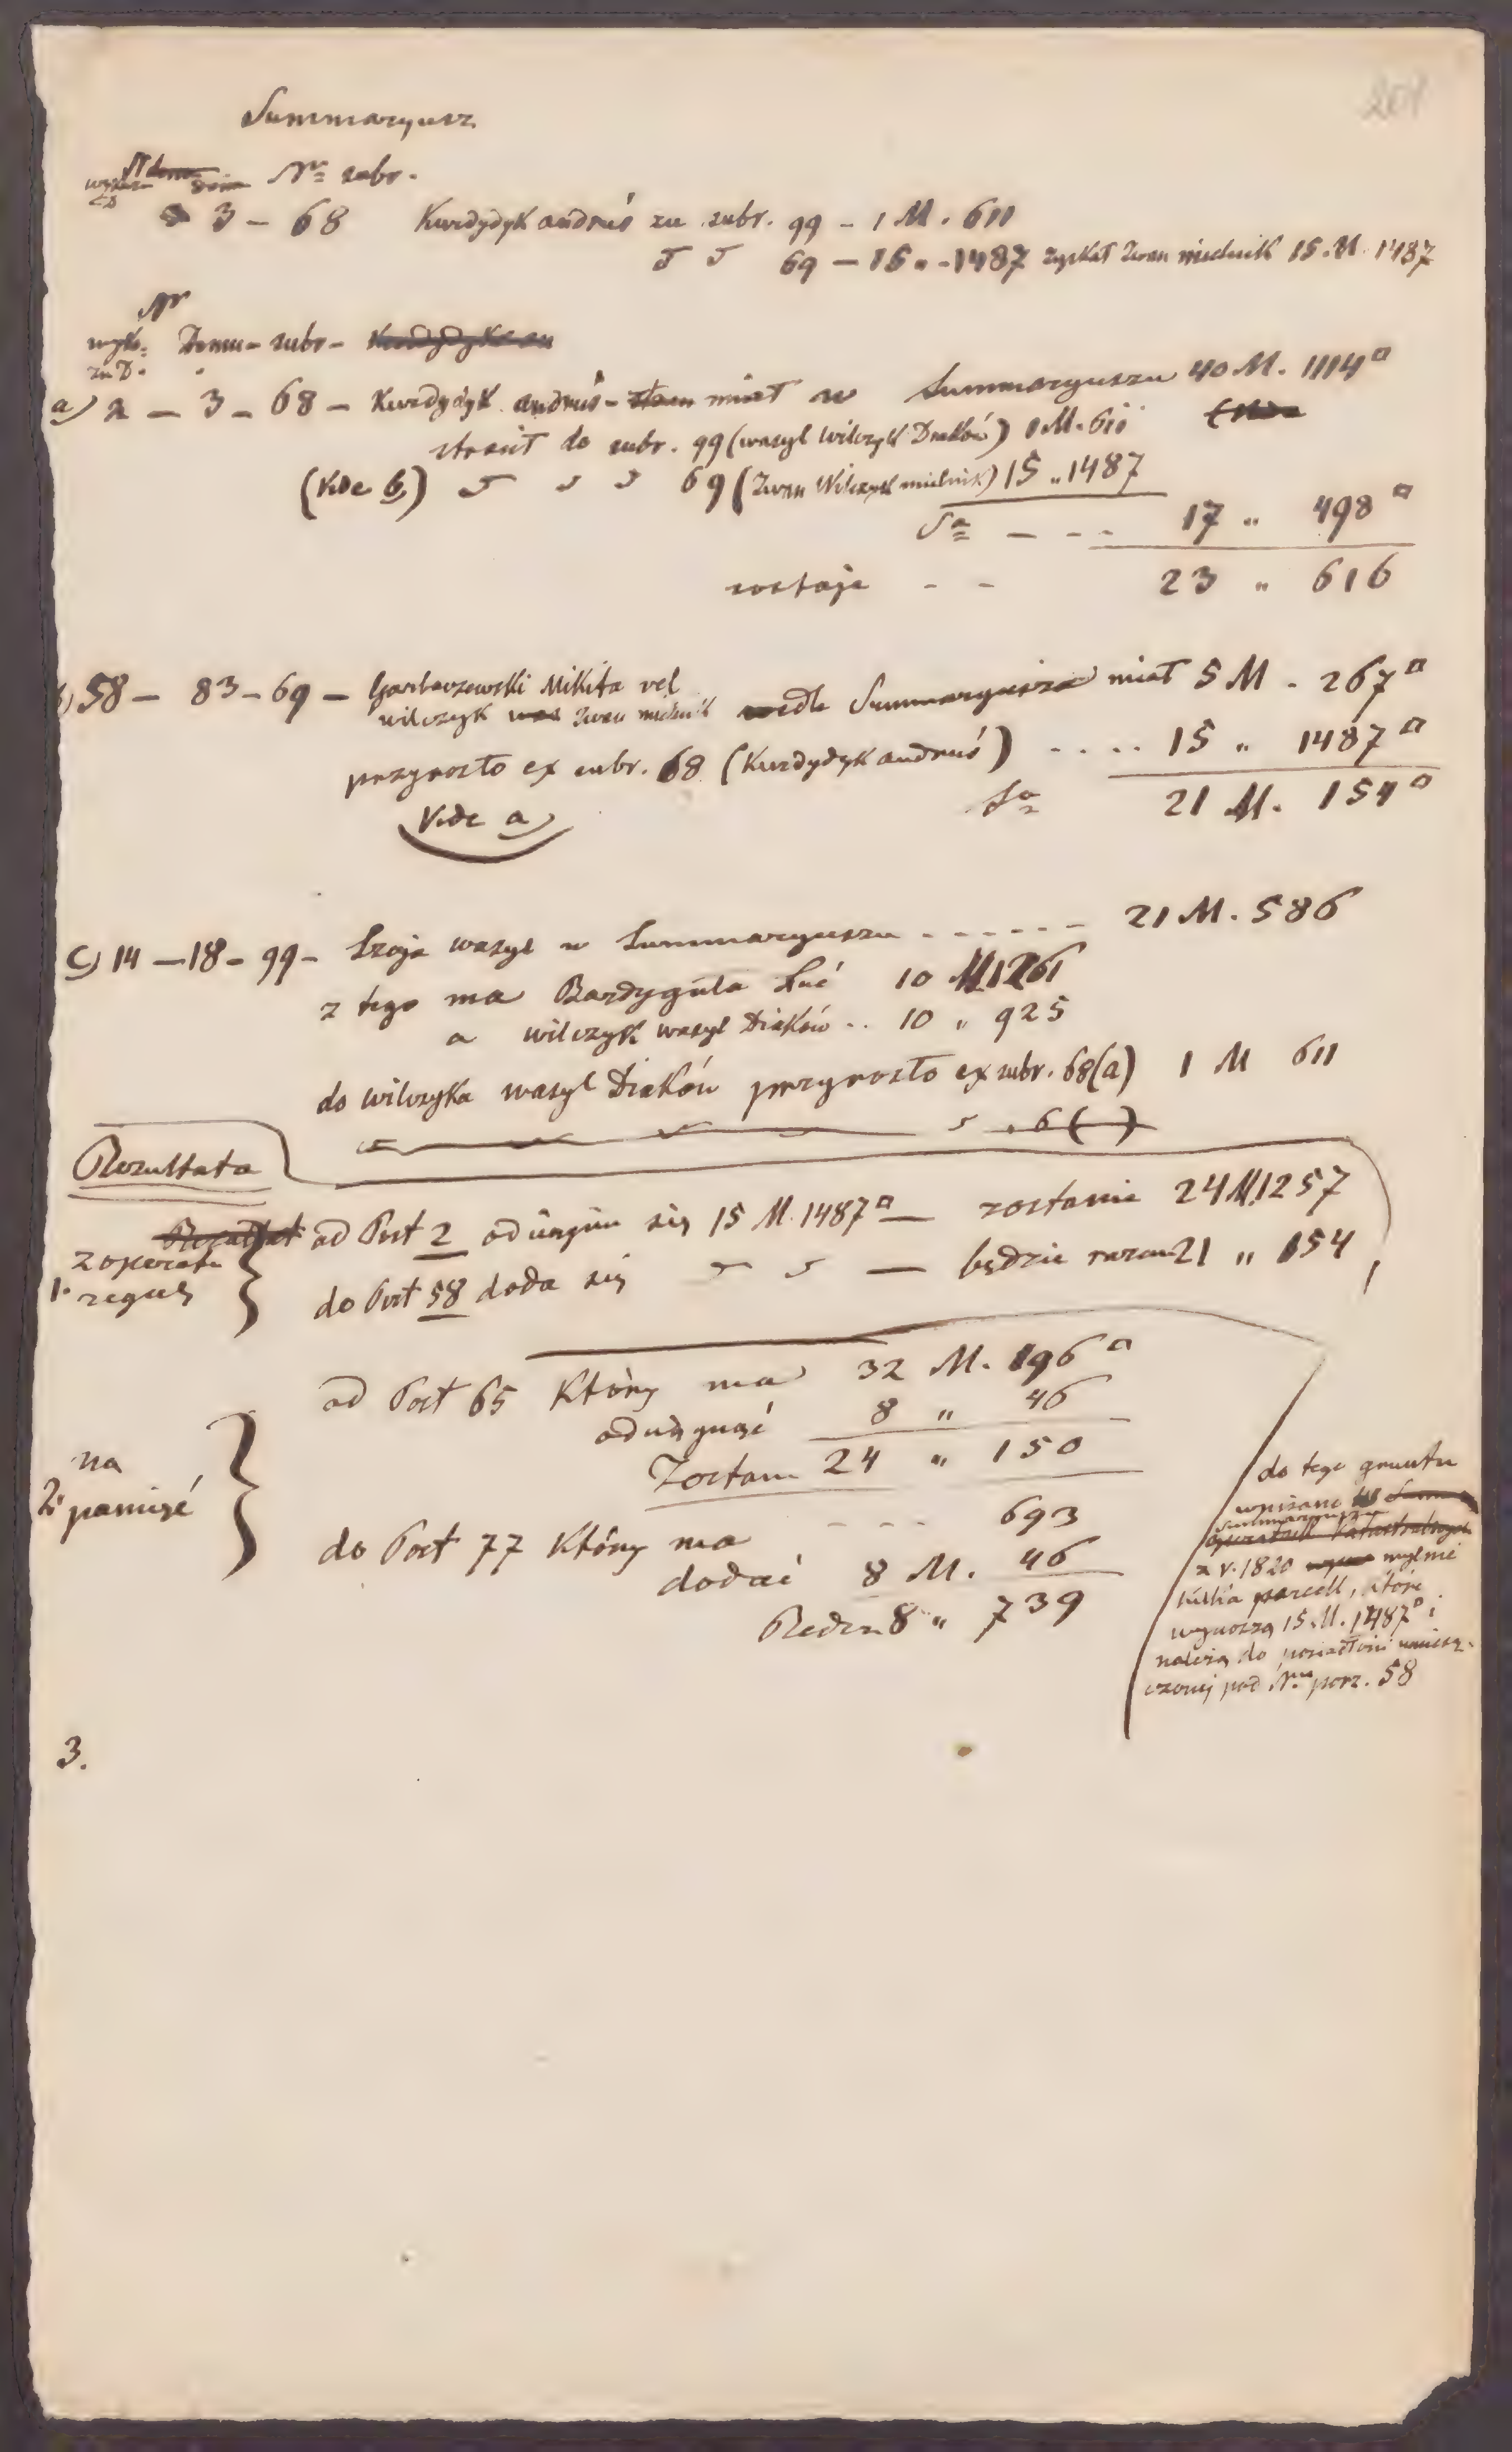 201
Summaryusz
Nr subr.
3 – 68 Kurdydyk Andruś zu subr. 99 – 1 M. 611
69 – 15 „ – 1487 zyskał Iwan mielnik 15. M. 1487
Nr
wyk: Domu – subr –
zu D.
a) 2 – 3 – 68 – Kurdydyk Andruś – miał w Summaryuszu 40 M. 1114□
stracił do subr. 99 (wasyl Wilczyk Diaków) 1 M. 611
(Vide b) 69 (Iwan Wilczyk mielnik) 15 „ 1487
Sa – – – 17 „ 498□
zostaje – – 23 „ 616
b) 58 – 83 – 69 – Garbaczewski Mikita vel
wilczyk Iwan mielnik wedle Summaryusza miał 5 M. 267□
przyrosło ex subr. 68 (Kurdydyk andruś) . . . . 15 „ 1487□
Sa 21 M. 154□
Vide a)
c) 14 – 18 – 99 – wasyl w Summaryuszu – – – – – – 21 M. 586
z tego ma Bardyguła Luć 10 M 1261
a wilczyk wasyl Diaków . . 10 „ 925
do wilczyka wasyl Diaków przyrosło ex subr. 68(a) 1 M 611
Rezultata
od Post 2 odciągnie się 15 M. 1487□ — zostanie 24 M 1257
z operatu
1. reguły
do Post 58 doda się — będzie razem 21 „ 154
od Post 65 Który ma 32 M. 196□
odciągnąć 8 „ 46
Zostan 24 „ 150
na
2. pamięć
do Post 77 Który ma – – – 693
dodać 8 M. 46
Będzie 8 „ 739
do tego gruntu
wpisane
Summaryuszu
z r. 1820 mylnie
kilka parcell, które
wynoszą 15. M. 1487□ i
należą do posiadłości umiesz-
czonej pod Nrm porz. 58
3.